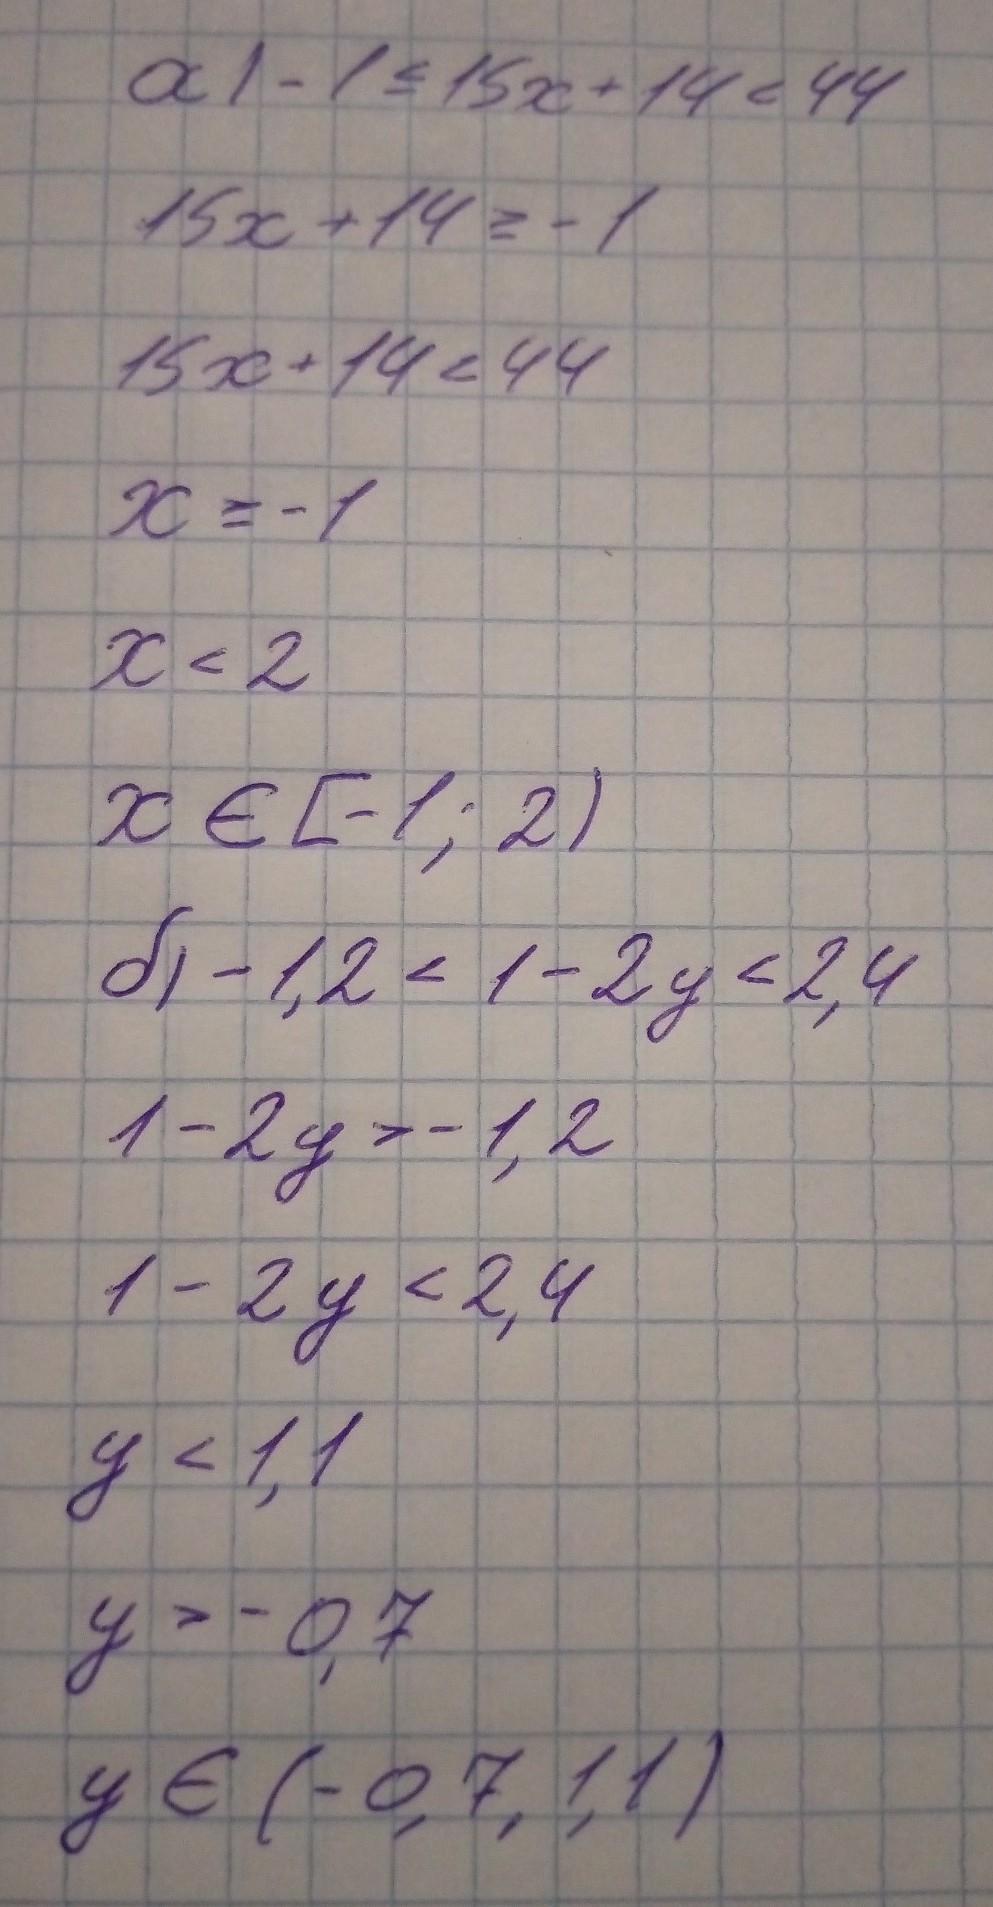 а) -1 ≤ 15x + 14 < 44
15x + 14 ≥ -1
15x + 14 < 44
x ≥ -1
x < 2
x ∈ [-1; 2)
б) -1,2 < 1 - 2y < 2,4
1 - 2y > -1,2
1 - 2y < 2,4
y < 1,1
y > -0,7
y ∈ (-0,7, 1,1)